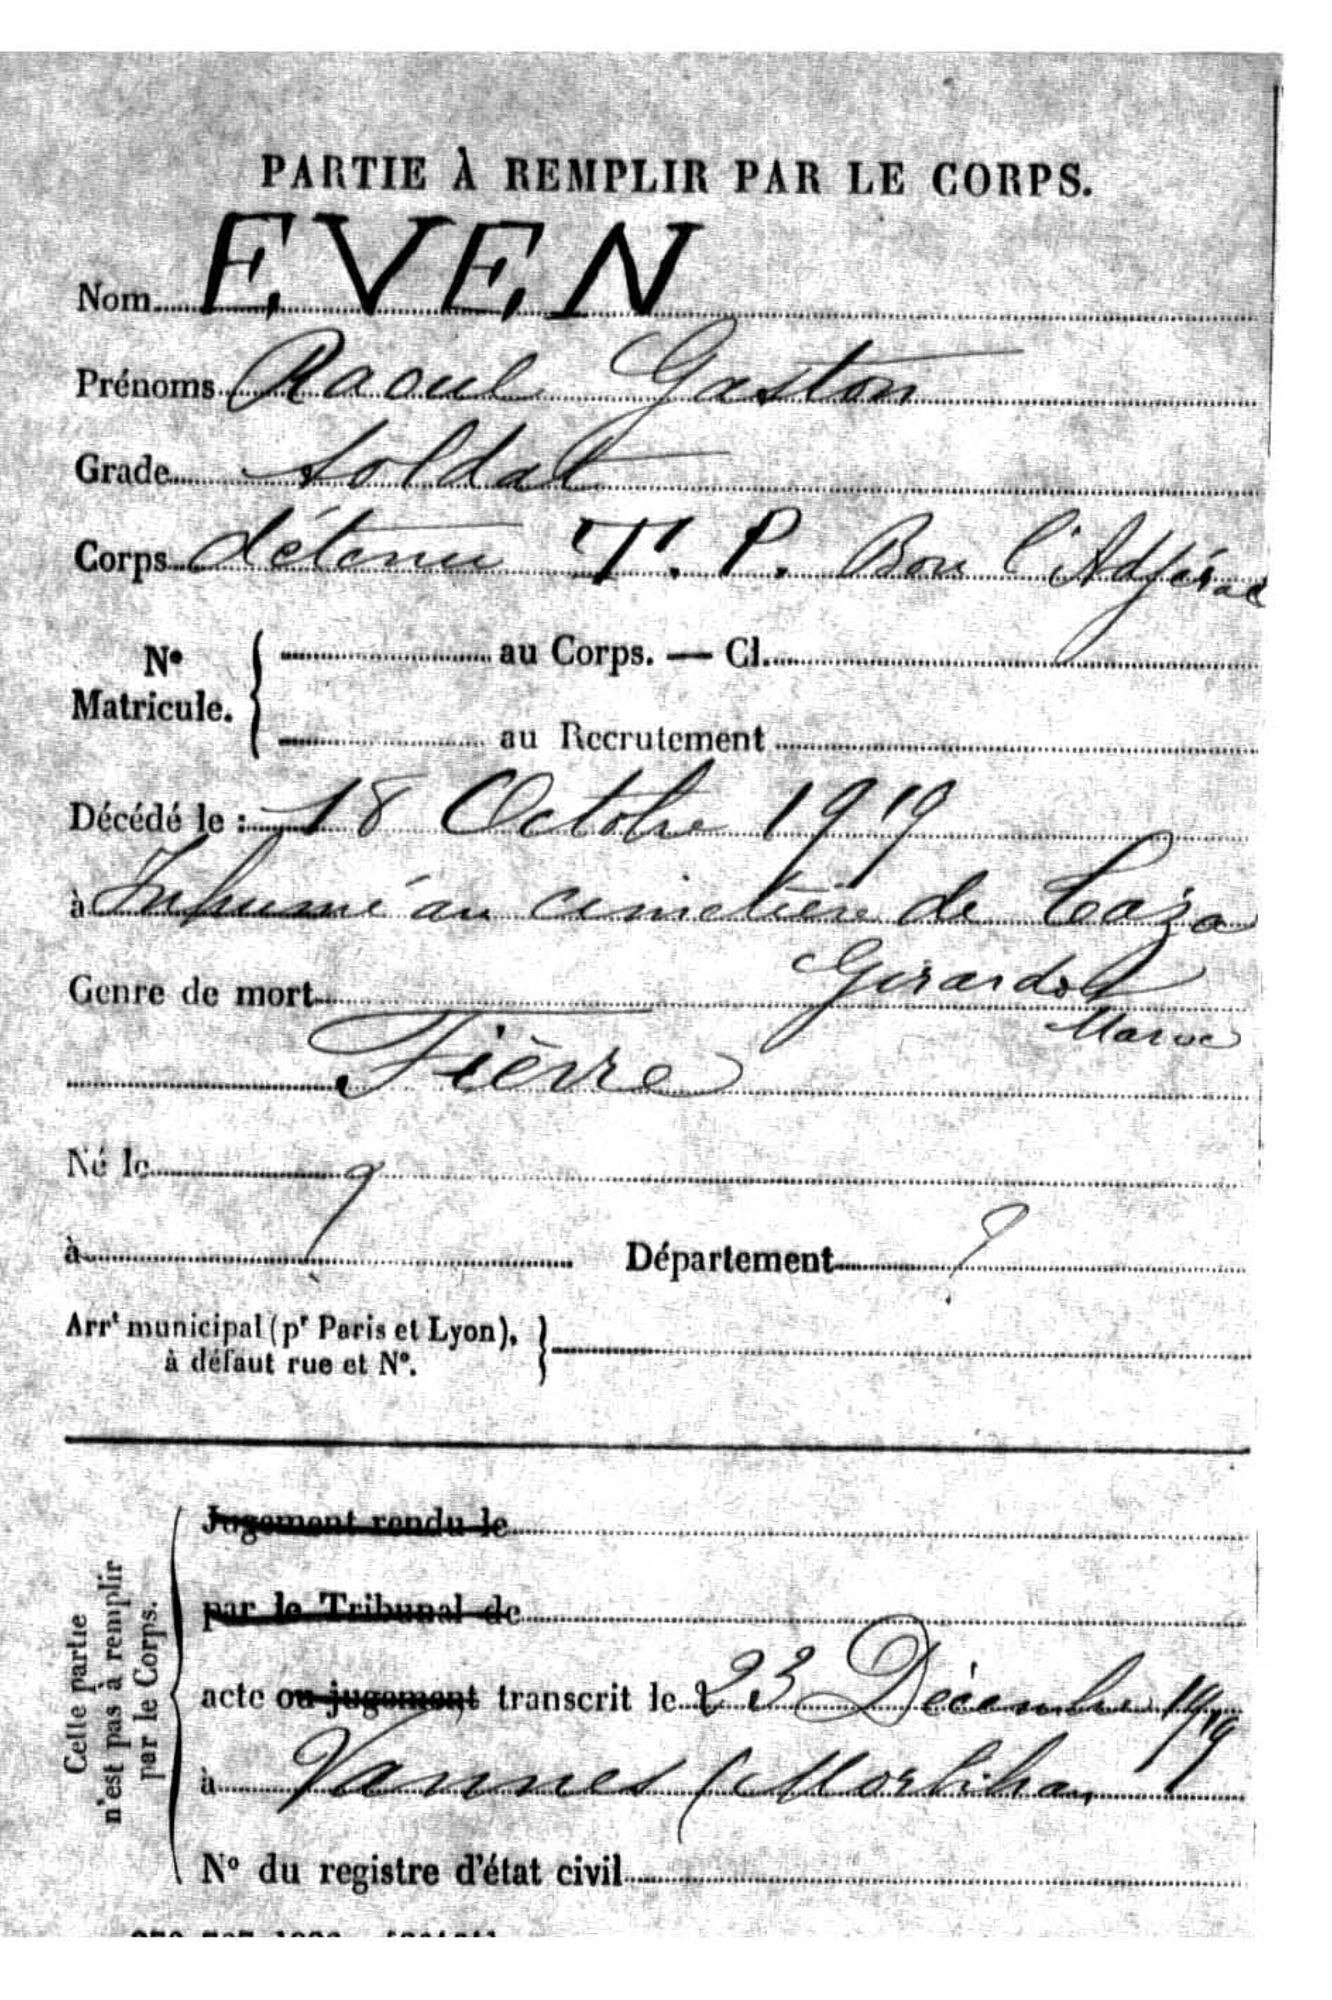 PARTIE À REMPLIR PAR LE CORPS.
Nom EVEN
Prénoms Raoul Gaston
Grade soldat
Corps détenu T. P. Bou
N° Matricule. { au Corps. — Cl.
au Recrutement
Décédé le : 18 Octobre 1919
à Inhumé au cimetière de Caza
Genre de mort Girardot
Maroc
Fièvre
Né le ?
à Département ?
Arrt municipal (pr Paris et Lyon), }
à défaut rue et N°.
Cette partie
n'est pas à remplir
par le Corps.
Jugement rendu le
par le Tribunal de
acte ou jugement transcrit le 23 Décembre 1919
à Vannes (Morbihan
N° du registre d'état civil